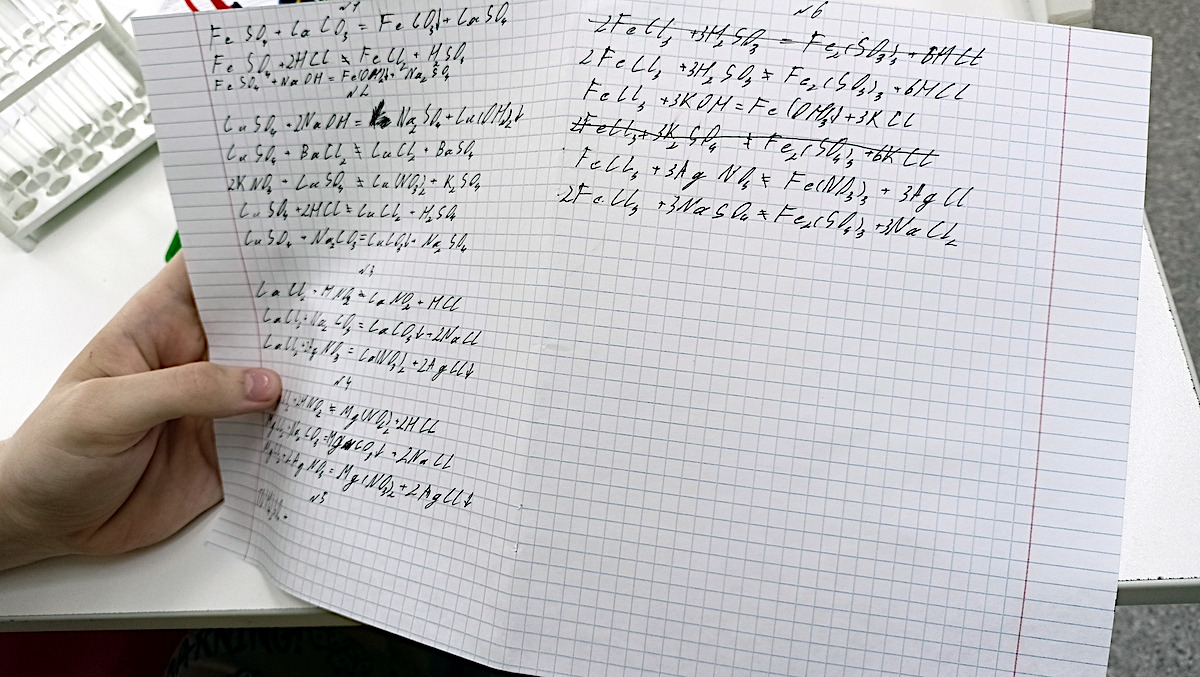 N1
FeSO₄ + CaCO₃ = FeCO₃↓ + CaSO₄
FeSO₄ + 2HCl ≠ FeCl₂ + H₂SO₄
FeSO₄ + NaOH = Fe(OH)₂↓ + Na₂SO₄
N2
CuSO₄ + 2NaOH = Na₂SO₄ + Cu(OH)₂↓
CuSO₄ + BaCl₂ ≠ CuCl₂ + BaSO₄
2KNO₃ + CuSO₄ ≠ Cu(NO₃)₂ + K₂SO₄
CuSO₄ + 2HCl ≠ CuCl₂ + H₂SO₄
CuSO₄ + Na₂CO₃ = CuCO₃↓ + Na₂SO₄
N3
CaCl₂ + HNO₂ ≠ CaNO₂ + HCl
CaCl₂ + Na₂CO₃ = CaCO₃↓ + 2NaCl
CaCl₂ + Ag NO₃ = Ca(NO₃)₂ + 2AgCl↓
N4
+ 2HNO₂ ≠ Mg(NO₂)₂ + 2HCl
MgCl₂ + Na₂CO₃ = MgCO₃↓ + 2NaCl
MgCl₂ + 2AgNO₃ = Mg(NO₃)₂ + 2AgCl↓
N5
N6
2FeCl₃ + 3H₂SO₃ = Fe₂(SO₃)₃ + 6HCl
2FeCl₃ + 3H₂SO₃ ≠ Fe₂(SO₃)₃ + 6HCl
FeCl₃ + 3KOH = Fe(OH)₃↓ + 3KCl
2FeCl₃ + 3K₂SO₄ ≠ Fe₂(SO₄)₃ + 6KCl
FeCl₃ + 3AgNO₃ ≠ Fe(NO₃)₃ + 3AgCl
2FeCl₃ + 3NaSO₄ ≠ Fe₂(SO₄)₃ + 3NaCl₂